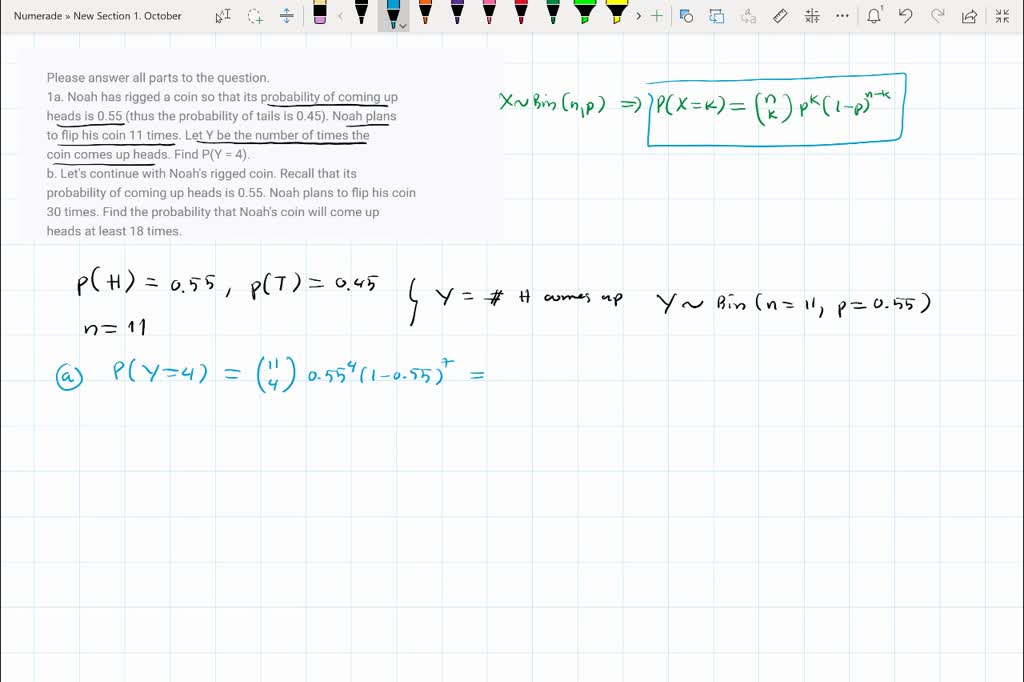 Numerade » New Section 1. October
Please answer all parts to the question.
1a. Noah has rigged a coin so that its probability of coming up
heads is 0.55 (thus the probability of tails is 0.45). Noah plans
to flip his coin 11 times. Let Y be the number of times the
coin comes up heads. Find P(Y = 4).
b. Let's continue with Noah's rigged coin. Recall that its
probability of coming up heads is 0.55. Noah plans to flip his coin
30 times. Find the probability that Noah's coin will come up
heads at least 18 times.
X~Bin(n,p) => P(X=k) = (n k) p^k (1-p)^n-k
P(H) = 0.55, P(T) = 0.45
n = 11
Y = # H comes up
Y ~ Bin(n = 11, p = 0.55)
(a) P(Y=4) = (11 4) 0.55^4 (1-0.55)^7 =